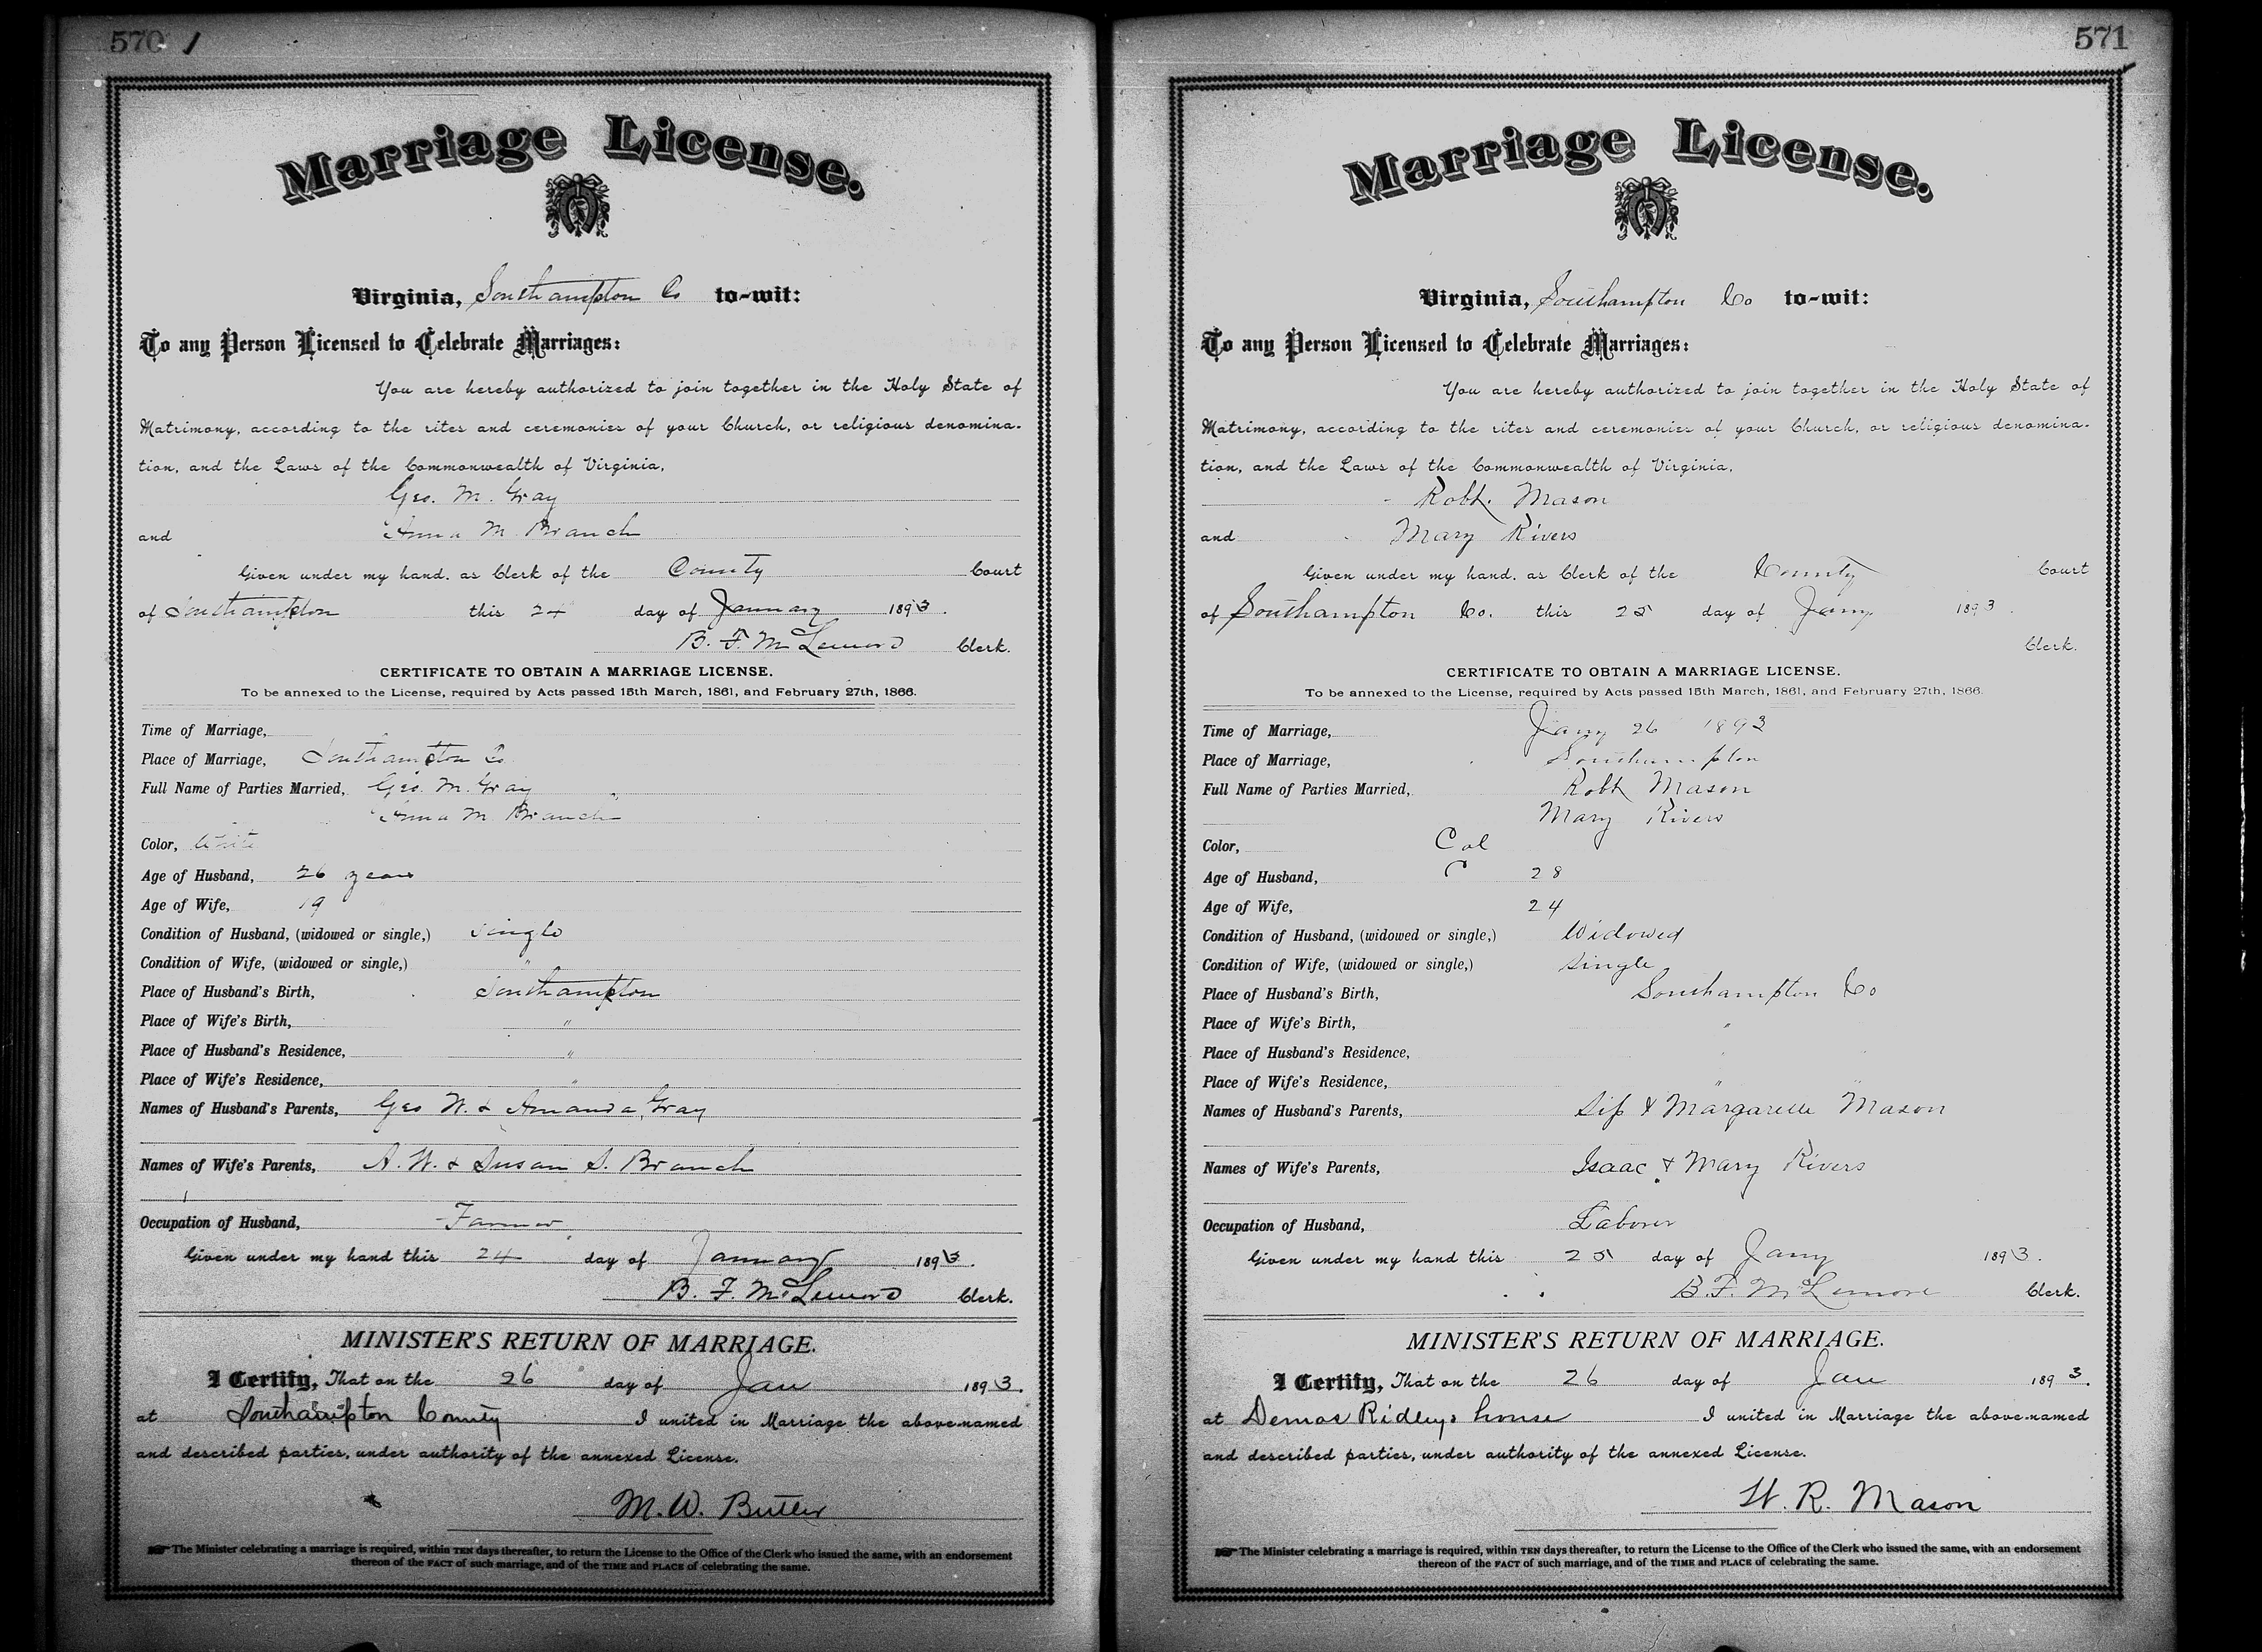 570
Marriage License.
Virginia, Southampton Co to-wit:
To any Person Licensed to Celebrate Marriages:
You are hereby authorized to join together in the Holy State of
Matrimony, according to the rites and ceremonies of your Church, or religious denomina-
tion, and the Laws of the Commonwealth of Virginia,
Geo. M. Gray
and Anna M. Branch
Given under my hand, as Clerk of the County Court
of Southampton this 24 day of January 1893.
B. F. McLemore Clerk.
CERTIFICATE TO OBTAIN A MARRIAGE LICENSE.
To be annexed to the License, required by Acts passed 15th March, 1861, and February 27th, 1866.
Time of Marriage,
Place of Marriage, Southampton Co
Full Name of Parties Married, Geo. M. Gray
Anna M Branch
Color, White
Age of Husband, 26 years
Age of Wife, 19 "
Condition of Husband, (widowed or single,) single
Condition of Wife, (widowed or single,) "
Place of Husband's Birth, Southampton
Place of Wife's Birth, "
Place of Husband's Residence, "
Place of Wife's Residence, "
Names of Husband's Parents, Geo W. & Amanda Gray
Names of Wife's Parents, A. W. & Susan S. Branch
Occupation of Husband, Farmer
Given under my hand this 24 day of January 1893.
B. F. McLemore Clerk.
MINISTER'S RETURN OF MARRIAGE.
I Certify, That on the 26 day of Jan 1893.
at Southampton County I united in Marriage the above-named
and described parties, under authority of the annexed License.
M. W. Butler
The Minister celebrating a marriage is required, within TEN days thereafter, to return the License to the Office of the Clerk who issued the same, with an endorsement
thereon of the FACT of such marriage, and of the TIME and PLACE of celebrating the same.
571
Marriage License.
Virginia, Southampton Co to-wit:
To any Person Licensed to Celebrate Marriages:
You are hereby authorized to join together in the Holy State of
Matrimony, according to the rites and ceremonies of your Church, or religious denomina-
tion, and the Laws of the Commonwealth of Virginia,
Robt. Mason
and Mary Rivers
Given under my hand, as Clerk of the County Court
of Southampton Co. this 25 day of Jany 1893.
Clerk.
CERTIFICATE TO OBTAIN A MARRIAGE LICENSE.
To be annexed to the License, required by Acts passed 15th March, 1861, and February 27th, 1866.
Time of Marriage, Jany 26 1893
Place of Marriage, Southampton
Full Name of Parties Married, Robt Mason
Mary Rivers
Color, Col
Age of Husband, 28
Age of Wife, 24
Condition of Husband, (widowed or single,) Widowed
Condition of Wife, (widowed or single,) single
Place of Husband's Birth, Southampton Co
Place of Wife's Birth, "
Place of Husband's Residence, "
Place of Wife's Residence, "
Names of Husband's Parents, Sip & Margarette Mason
Names of Wife's Parents, Isaac & Mary Rivers
Occupation of Husband, Laborer
Given under my hand this 25 day of Jany 1893.
B. F. McLemore Clerk.
MINISTER'S RETURN OF MARRIAGE.
I Certify, That on the 26 day of Jan 1893.
at Ridleys house I united in Marriage the above-named
and described parties, under authority of the annexed License.
R. Mason
The Minister celebrating a marriage is required, within TEN days thereafter, to return the License to the Office of the Clerk who issued the same, with an endorsement
thereon of the FACT of such marriage, and of the TIME and PLACE of celebrating the same.